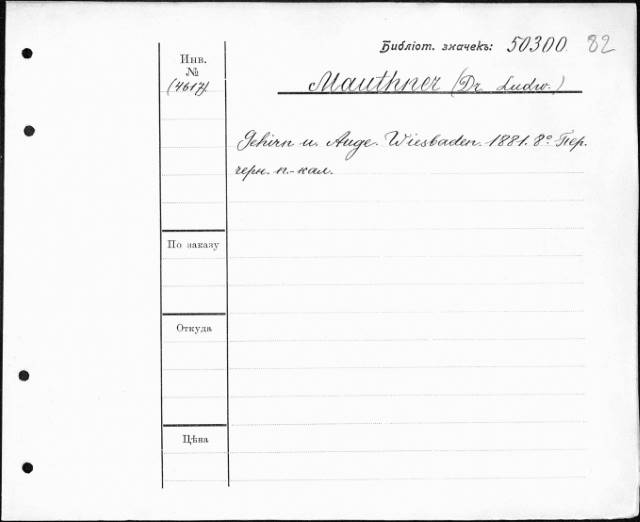 Библіот. значекъ: 50300. 82
Инв.
№
(4617).
Mauthner (Dr. Ludw.)
Gehirn u. Auge. Wiesbaden. 1881. 8º. Пер.
черн. п.-кал.
По заказу
Откуда
Цѣна